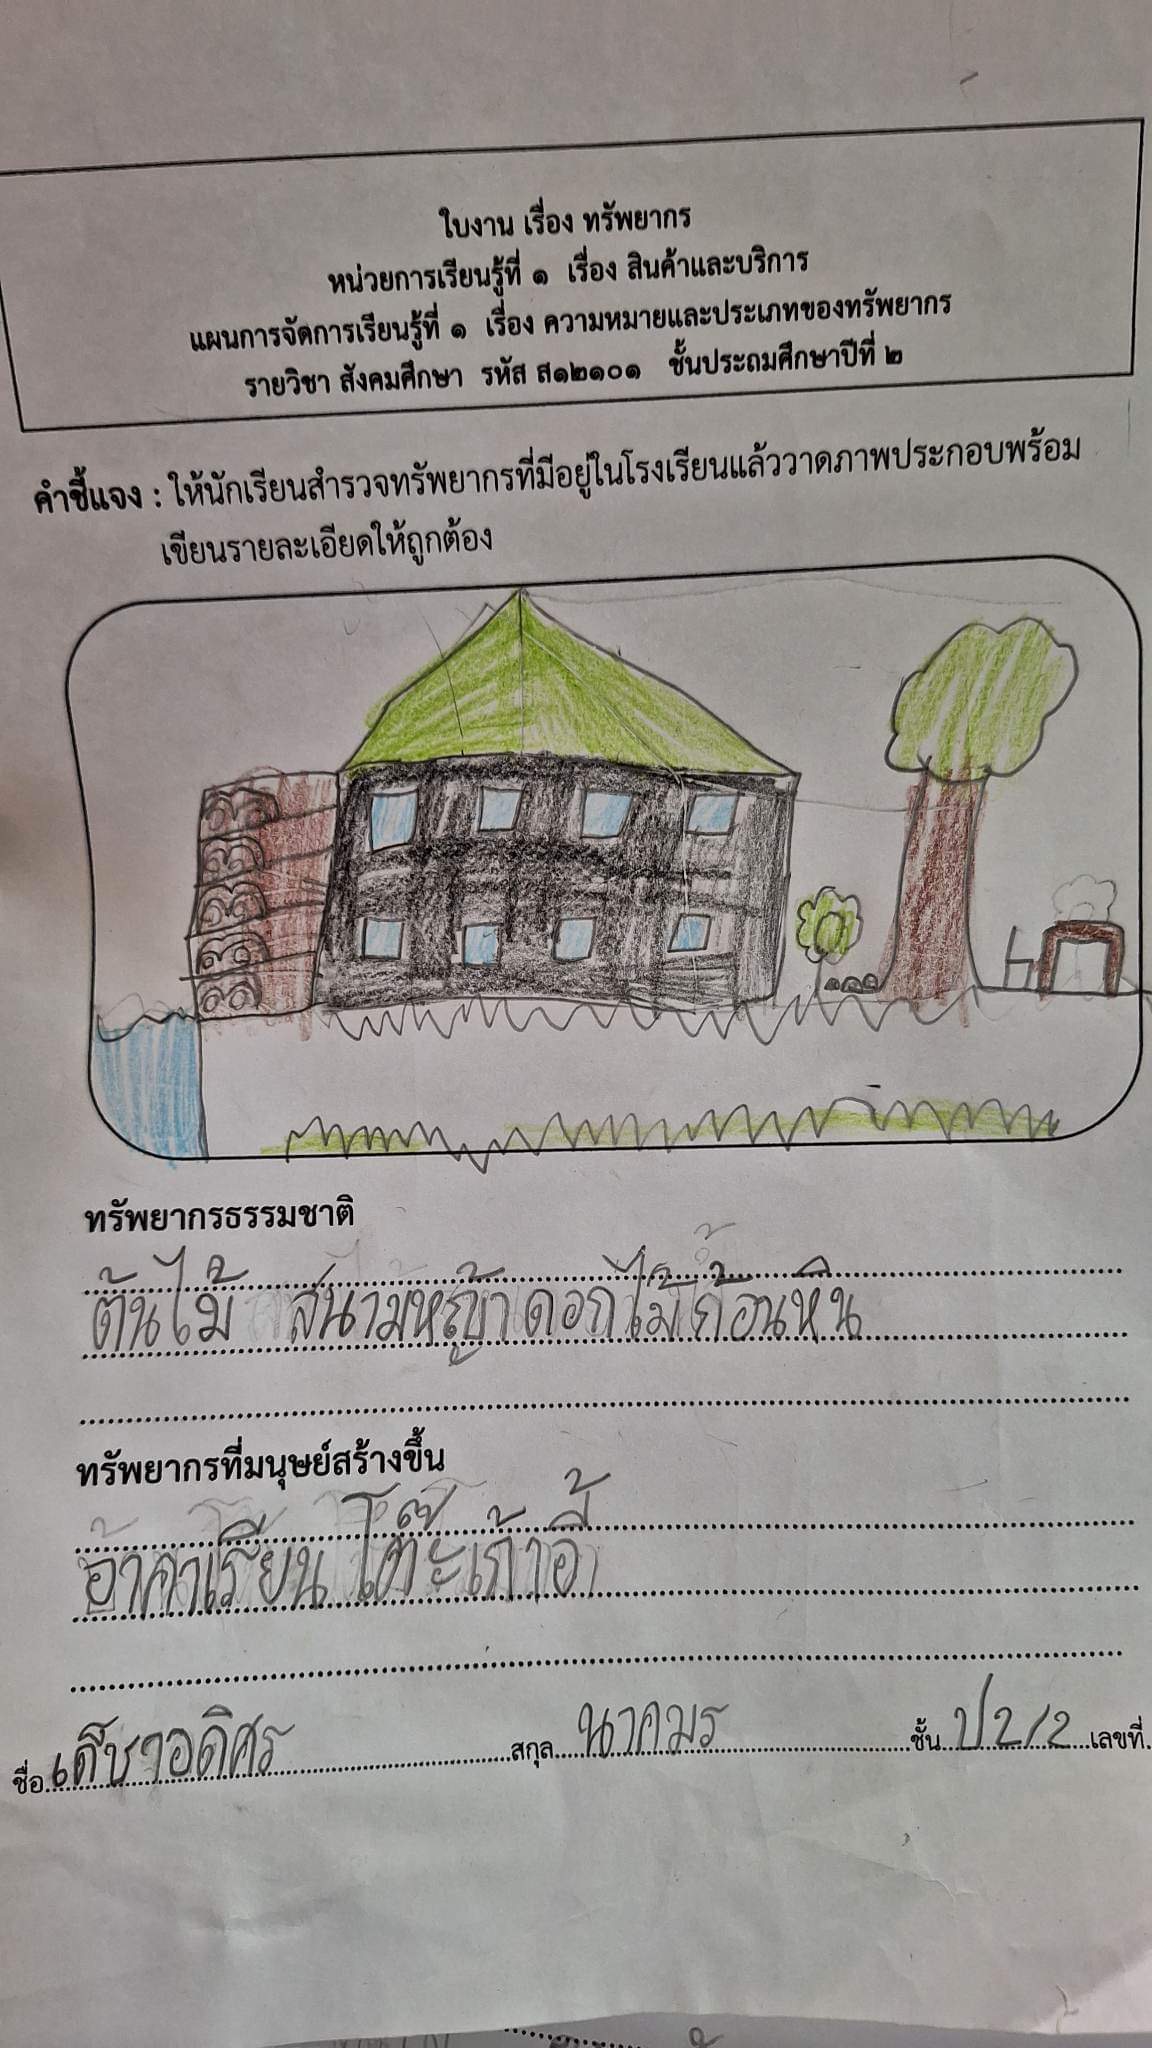 ใบงาน เรื่อง ทรัพยากร
หน่วยการเรียนรู้ที่ ๑ เรื่อง สินค้าและบริการ
แผนการจัดการเรียนรู้ที่ ๑ เรื่อง ความหมายและประเภทของทรัพยากร
รายวิชา สังคมศึกษา รหัส ส๑๒๑๐๑ ชั้นประถมศึกษาปีที่ ๒
คำชี้แจง : ให้นักเรียนสำรวจทรัพยากรที่มีอยู่ในโรงเรียนแล้ววาดภาพประกอบพร้อม
เขียนรายละเอียดให้ถูกต้อง
ทรัพยากรธรรมชาติ
ต้นไม้ สนามหญ้า ดอกไม้ ก้อนหิน
ทรัพยากรที่มนุษย์สร้างขึ้น
อ้าคาเรียน โต๊ะเก้าอี้
ชื่อ อดิศร สกุล นาคมร ชั้น ป2/2 เลขที่